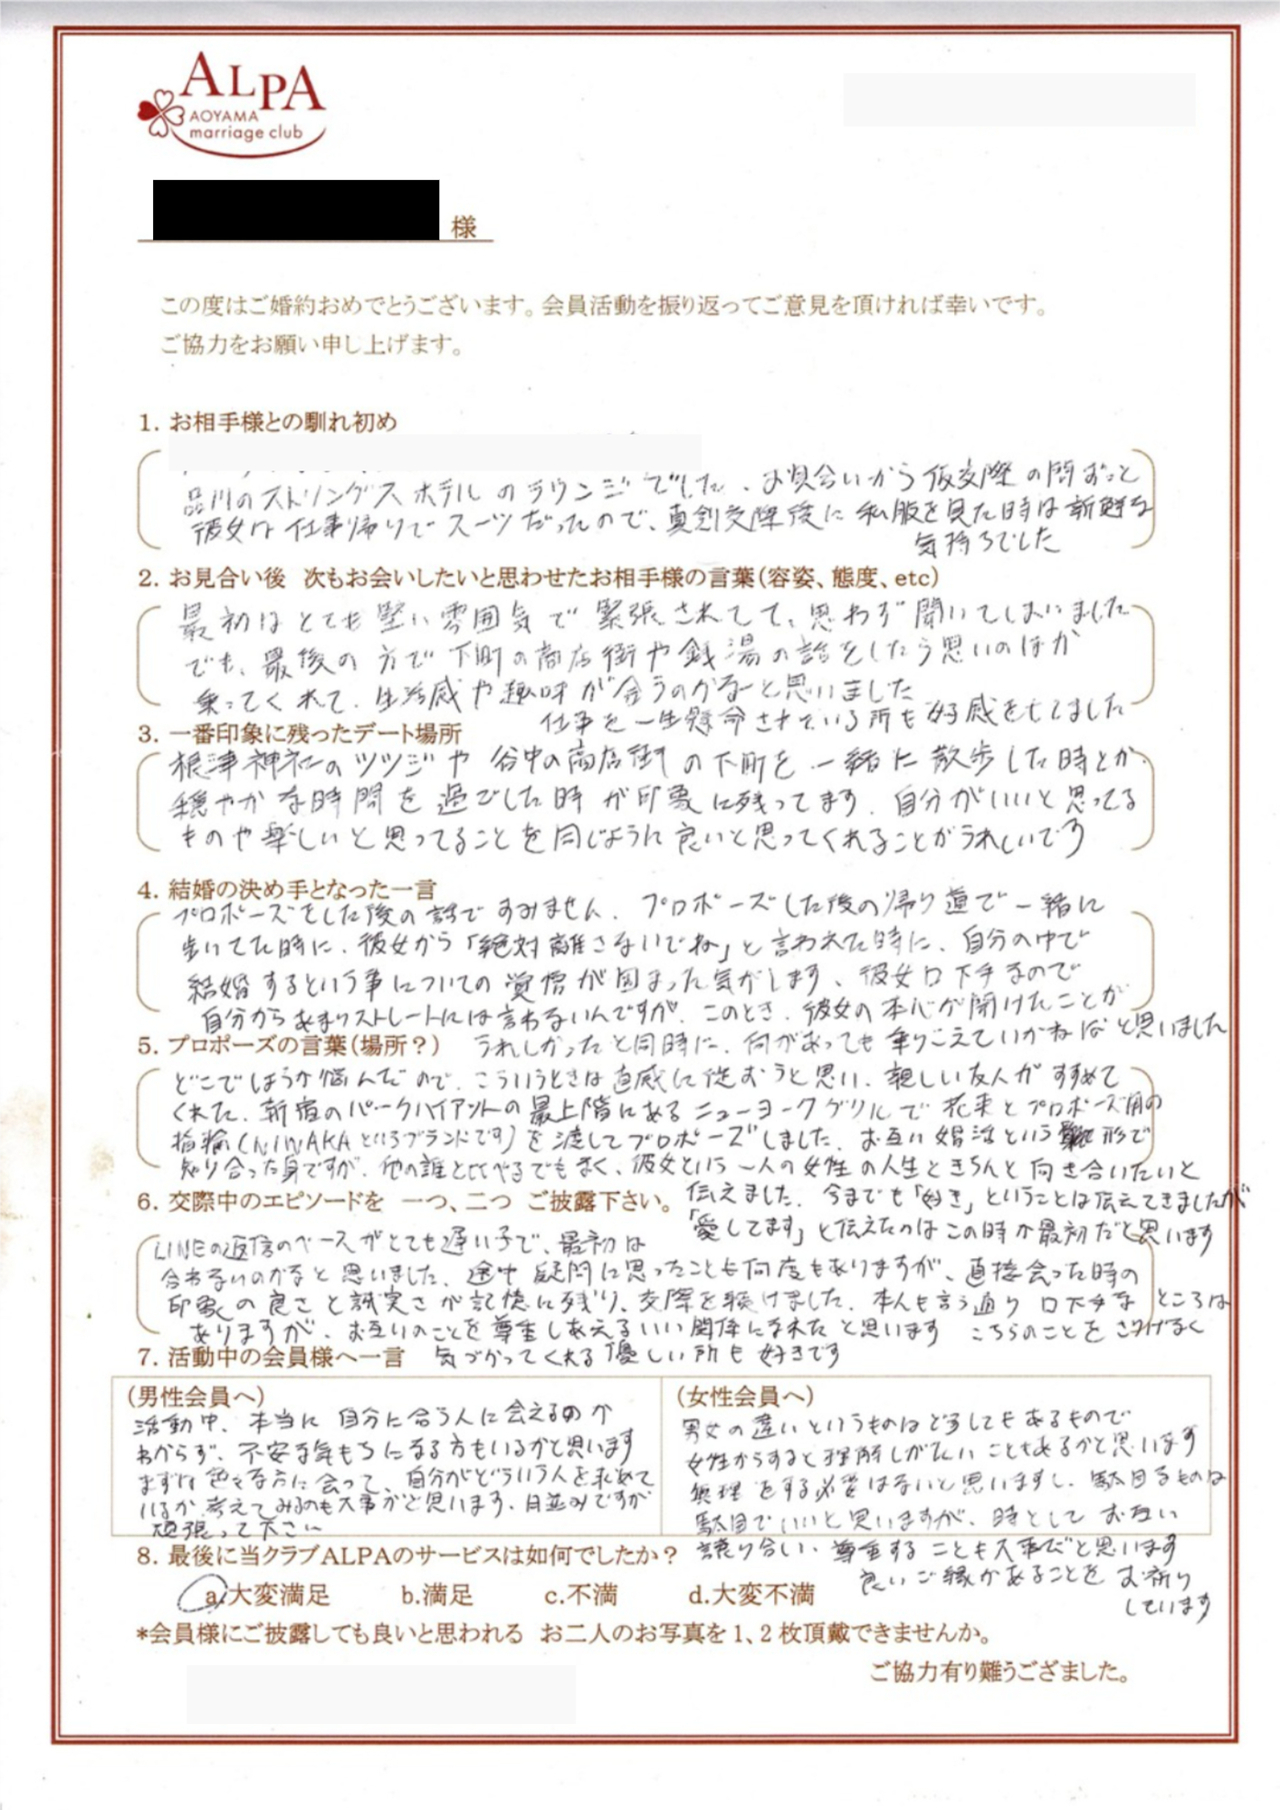 ALPA
AOYAMA
marriage club
様
この度はご婚約おめでとうございます。会員活動を振り返ってご意見を頂ければ幸いです。
ご協力をお願い申し上げます。
1. お相手様との馴れ初め
品川のストリングスホテルのラウンジでした、お見合いから仮交際の間ずっと
彼女は仕事帰りでスーツだったので、真剣交際後に私服を見た時は新鮮な
気持ちでした
2. お見合い後 次もお会いしたいと思わせたお相手様の言葉(容姿、態度、etc)
最初はとても堅い雰囲気で緊張されてて、思わず聞いてしまいました
でも、最後の方で下町の商店街や銭湯の話をしたら思いのほか
乗ってくれて、生活感や趣味が合うのかなーと思いました
仕事を一生懸命されている所も好感をもてました
3. 一番印象に残ったデート場所
根津神社のツツジや谷中の商店街の下町を一緒に散歩した時とか
穏やかな時間を過ごした時が印象に残ってます、自分がいいと思ってる
ものや楽しいと思ってることを同じように良いと思ってくれることがうれしいです
4. 結婚の決め手となった一言
プロポーズをした後の話ですみません、プロポーズした後の帰り道で一緒に
歩いてた時に、彼女から「絶対離さないでね」と言われた時に、自分の中で
結婚するという事についての覚悟が固まった気がします、彼女口下手なので
自分からあまりストレートには言わないんですが、このとき、彼女の本心が聞けたことが
5. プロポーズの言葉(場所?) うれしかったと同時に、何があっても乗りこえていかねばと思いました
どこでしようか悩んだので、こういうときは直感に従おうと思い、親しい友人がすすめて
くれた、新宿のパークハイアットの最上階にあるニューヨークグリルで花束とプロポーズ用の
指輪(NIWAKAというブランドです)を渡してプロポーズしました、お互い婚活という形で
知り合った身ですが、他の誰と比べるでもなく、彼女という一人の女性の人生ときちんと向き合いたいと
6. 交際中のエピソードを 一つ、二つ ご披露下さい。 伝えました、今までも「好き」ということは伝えてきましたが
「愛してます」と伝えたのはこの時が最初だと思います
LINEの返信のペースがとても遅い子で、最初は
合わないのかなと思いました、途中疑問に思ったことも何度もありますが、直接会った時の
印象の良さと誠実さが記憶に残り、交際を続けました、本人も言う通り口下手なところは
ありますが、お互いのことを尊重しあえるいい関係になれたと思います こちらのことをさりげなく
7. 活動中の会員様へ一言 気づかってくれる優しい所も好きです
(男性会員へ)
活動中、本当に自分に合う人に会えるのか
わからず、不安な気もちになる方もいるかと思います
まずは色々な方に会って、自分がどういう人を求めて
いるか考えてみるのも大事かと思います、月並みですが
頑張って下さい
(女性会員へ)
男女の違いというものはどうしてもあるもので
女性からすると理解しがたいこともあるかと思います
無理をする必要はないと思いますし、駄目なものは
駄目でいいと思いますが、時としてお互い
譲り合い、尊重することも大事だと思います
良いご縁があることをお祈り
しています
8. 最後に当クラブALPAのサービスは如何でしたか?
a.大変満足 b.満足 c.不満 d.大変不満
*会員様にご披露しても良いと思われる お二人のお写真を1、2枚頂戴できませんか。
ご協力有り難うござました。